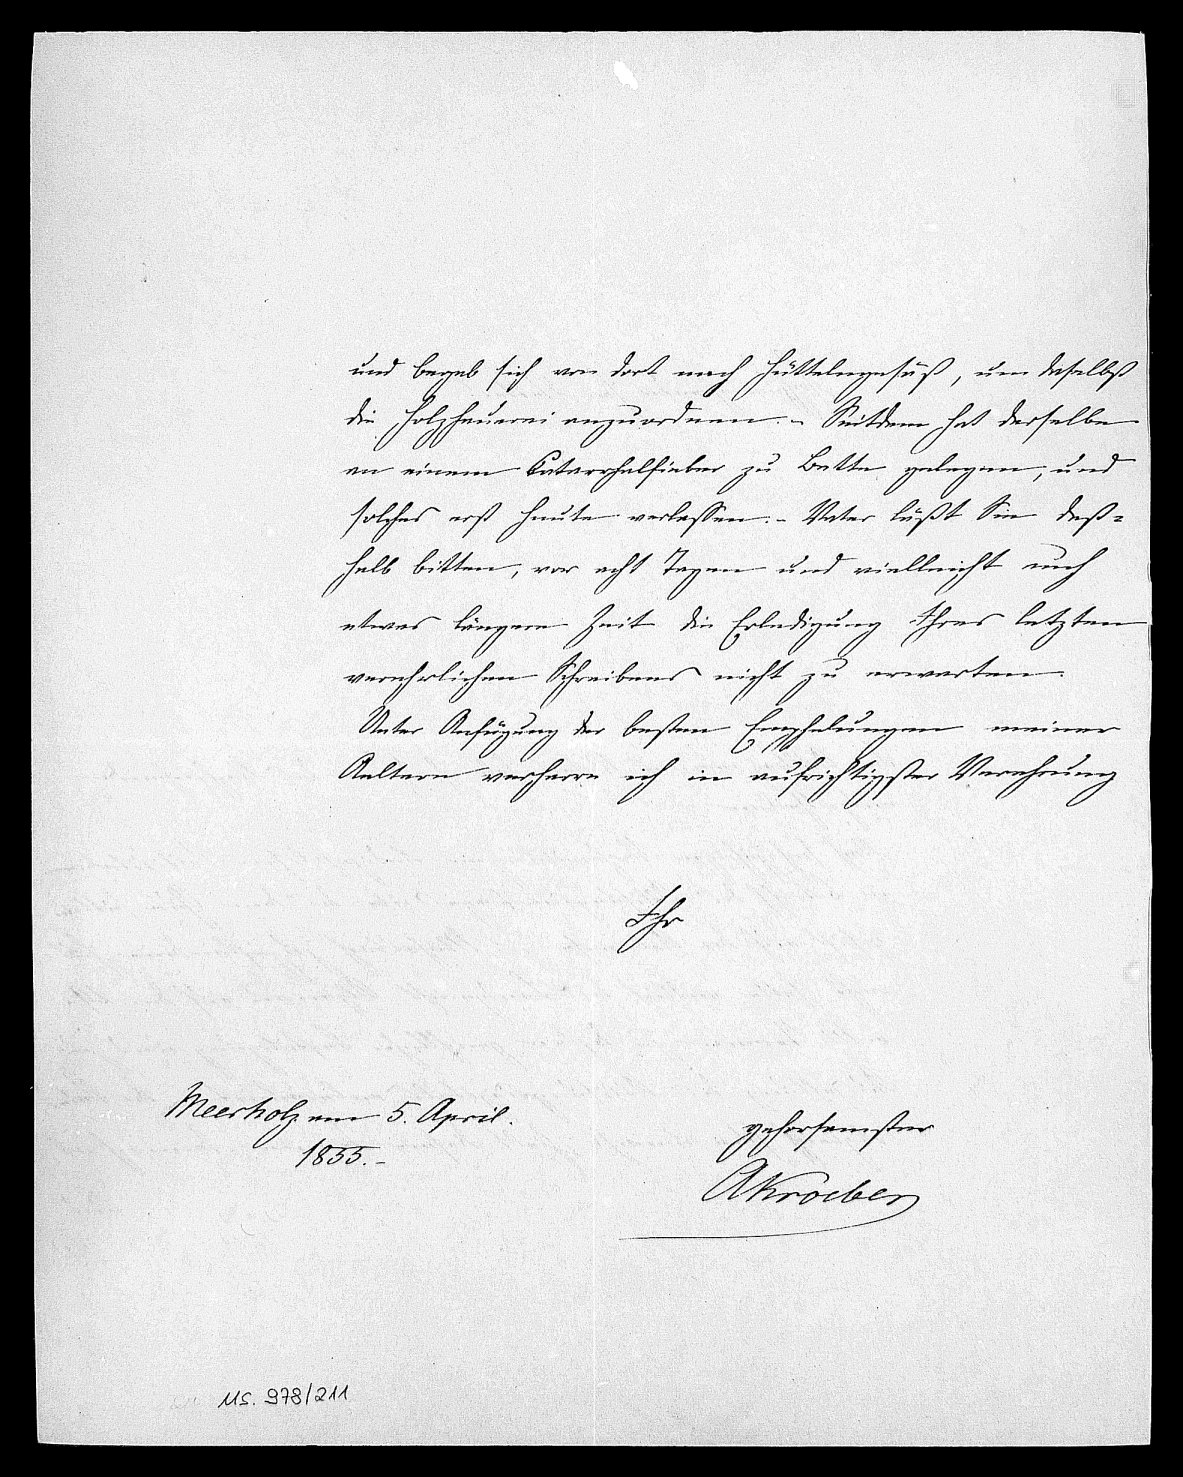 und begab sich von dort nach Hüttelngesäß, um daselbst
die Holzhauerei anzuordnen. – Seitdem hat derselbe
an einem Catarrhalfieber zu Bette gelegen, und
solches erst heute verlassen. – Vater läßt Sie deß=
halb bitten, vor acht Tagen und vielleicht noch
etwas längere Zeit die Erledigung Ihres letzten
verehrlichen Schreibens nicht zu erwarten.
Unter Anfügung der besten Empfehlungen meiner
Aeltern verharre ich in aufrichtigster Verehrung
Ihr
Meerholz am 5. April.
1855. –
gehorsamster
AKroeber
Ms. 978/211